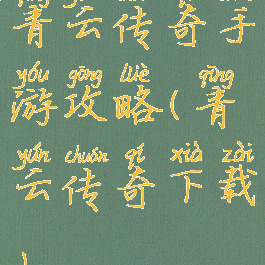 青云传奇手
yóu gōng lüè qīng
游攻略(青
yún chuán qí xià zài
云传奇下载
)